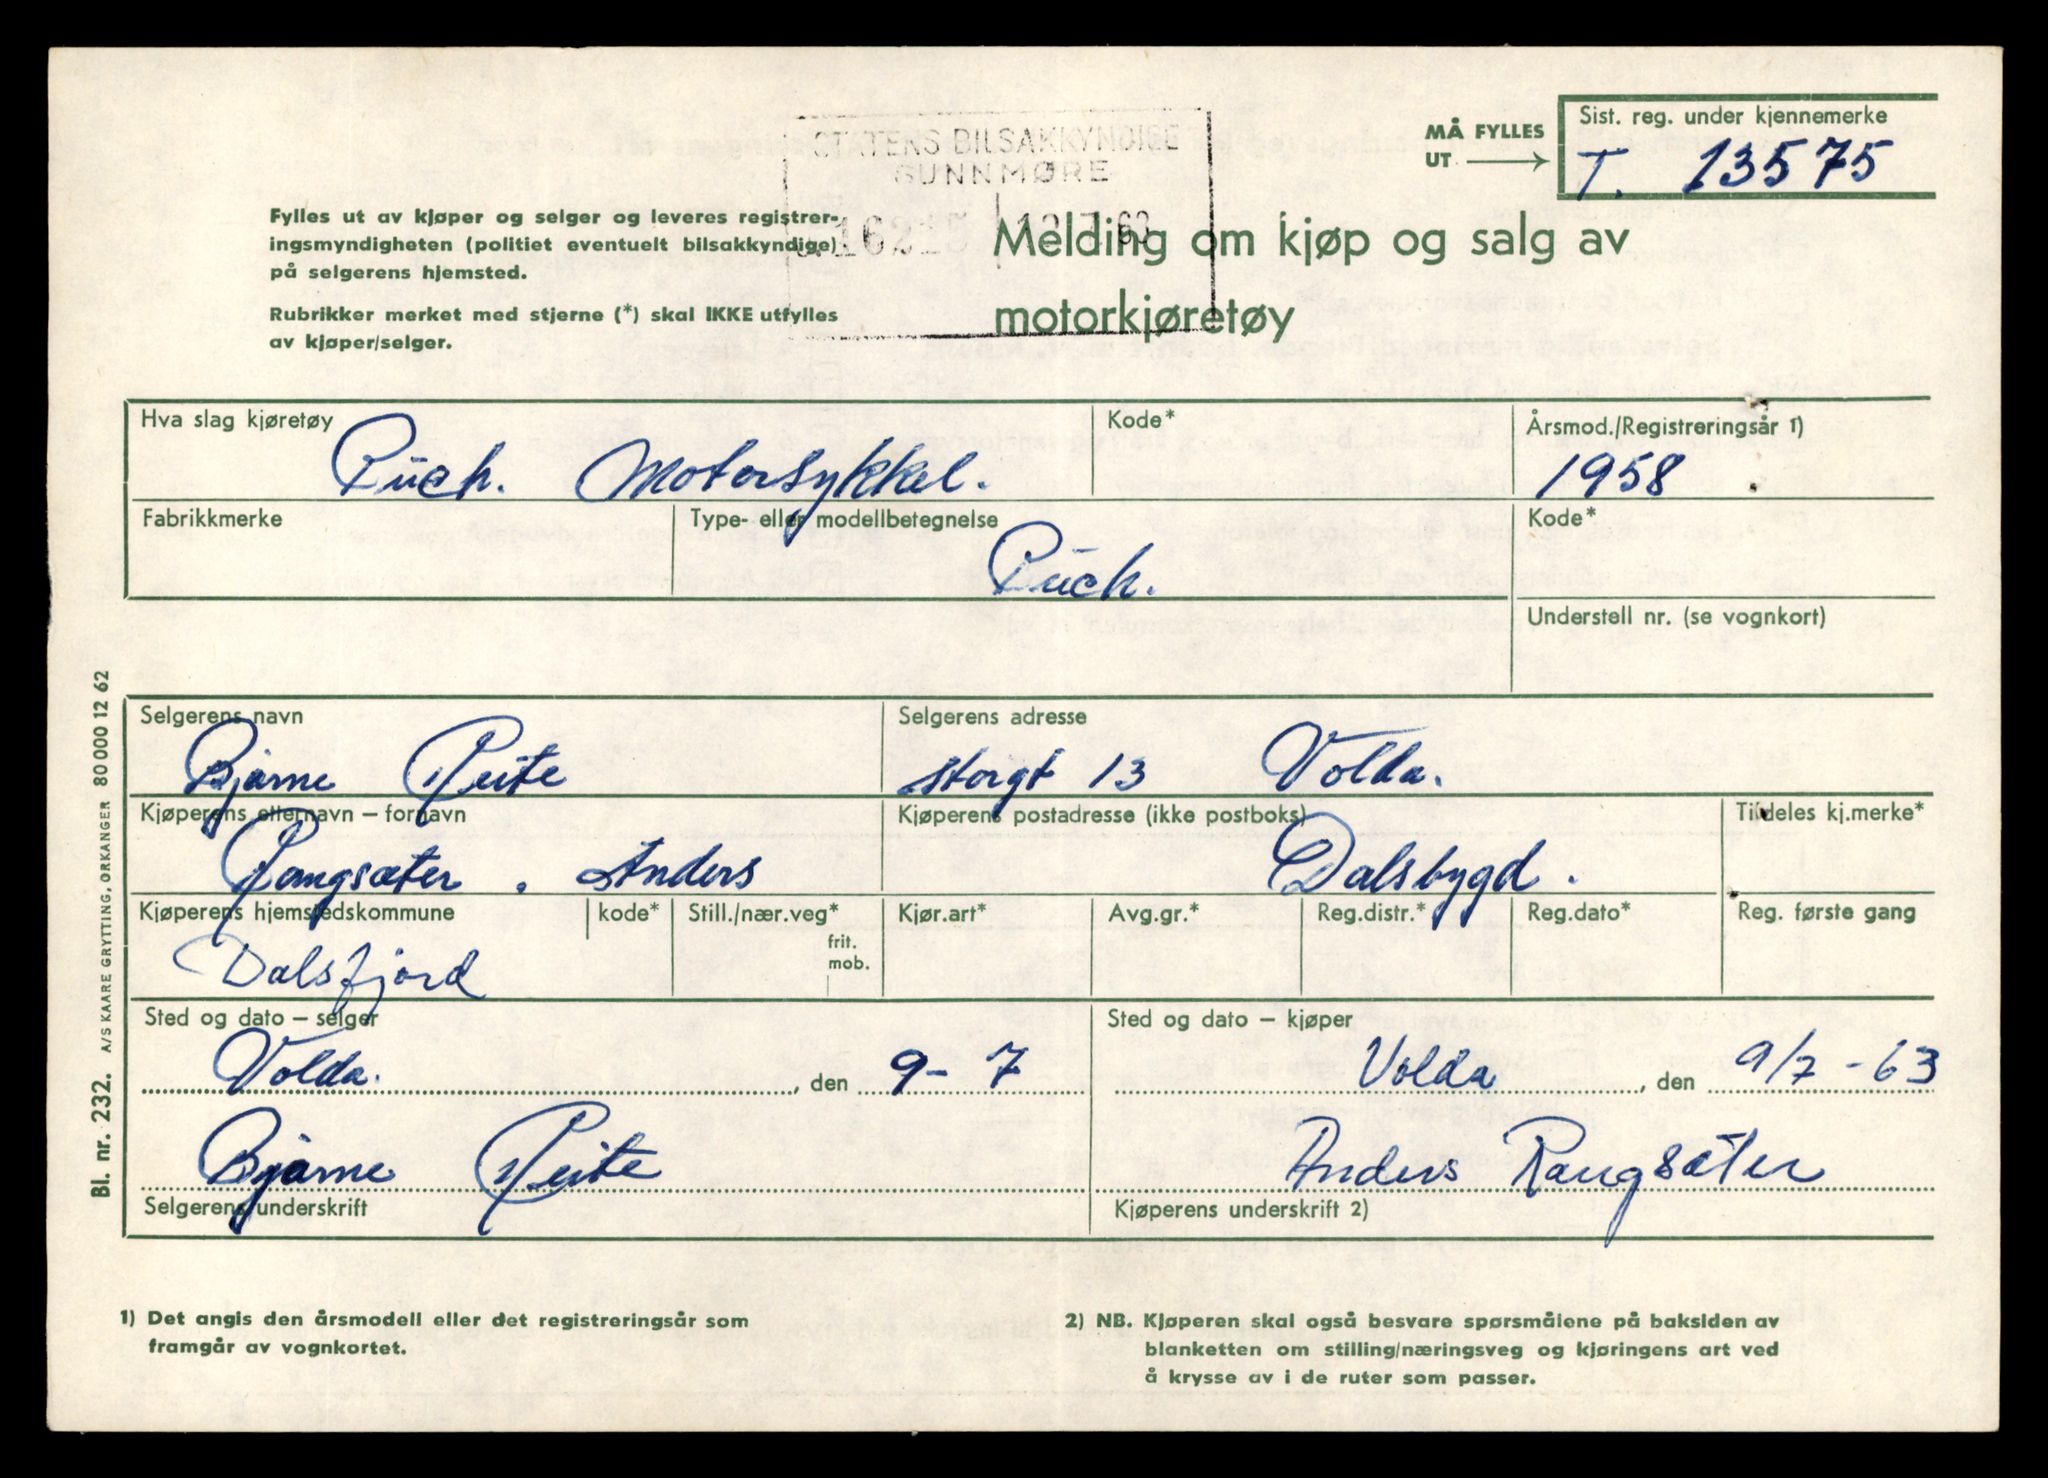 STATENS BILSAKKYNDIGE
SUNNMØRE
MÅ FYLLES
UT
Sist. reg. under kjennemerke
T. 13575
Fylles ut av kjøper og selger og leveres registrer-
ingsmyndigheten (politiet eventuelt bilsakkyndige)
på selgerens hjemsted.
Rubrikker merket med stjerne (*) skal IKKE utfylles
av kjøper/selger.
Melding om kjøp og salg av
motorkjøretøy
Hva slag kjøretøy
Puch. Motorsykkel.
Kode*
Årsmod./Registreringsår 1)
1958
Fabrikkmerke
Type- eller modellbetegnelse
Puch.
Kode*
Understell nr. (se vognkort)
Selgerens navn
Bjarne Reite
Selgerens adresse
Storgt 13 Volda.
Kjøperens etternavn – fornavn
Rangsæter. Anders
Kjøperens postadresse (ikke postboks)
Dalsbygd.
Tildeles kj.merke*
Kjøperens hjemstedskommune
Dalsfjord
kode*
Still./nær.veg*
frit.
mob.
Kjør.art*
Avg.gr.*
Reg.distr.*
Reg.dato*
Reg. første gang
Sted og dato – selger
Volda. , den 9-7
Sted og dato – kjøper
Volda , den 9/7-63
Bjarne Reite
Selgerens underskrift
Anders Rangsæter
Kjøperens underskrift 2)
Bl. nr. 232. A/S KAARE GRYTTING, ORKANGER 80000 12 62
1) Det angis den årsmodell eller det registreringsår som
framgår av vognkortet.
2) NB. Kjøperen skal også besvare spørsmålene på baksiden av
blanketten om stilling/næringsveg og kjøringens art ved
å krysse av i de ruter som passer.